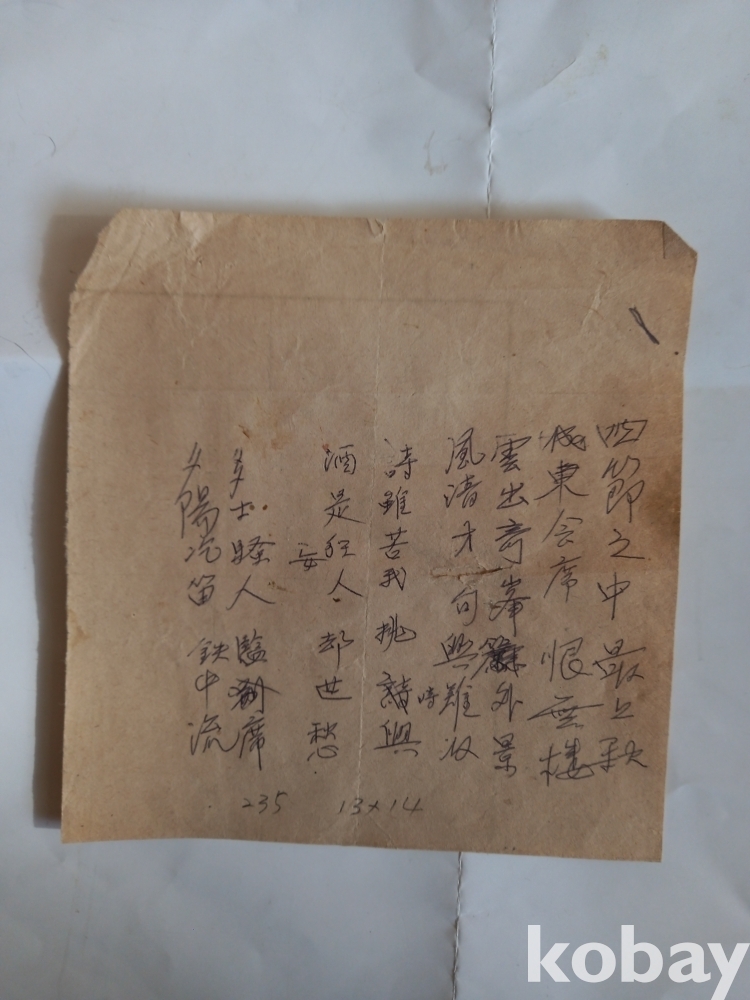 四節之中最上秋
東会席恨無樓
雲出奇峯外景
風清才句興難収
時
詩雖苦我挑詩興
酒是狂人却世愁
妄
多士騷人臨席
夕陽汽笛鉄中流
235 13×14
kobay